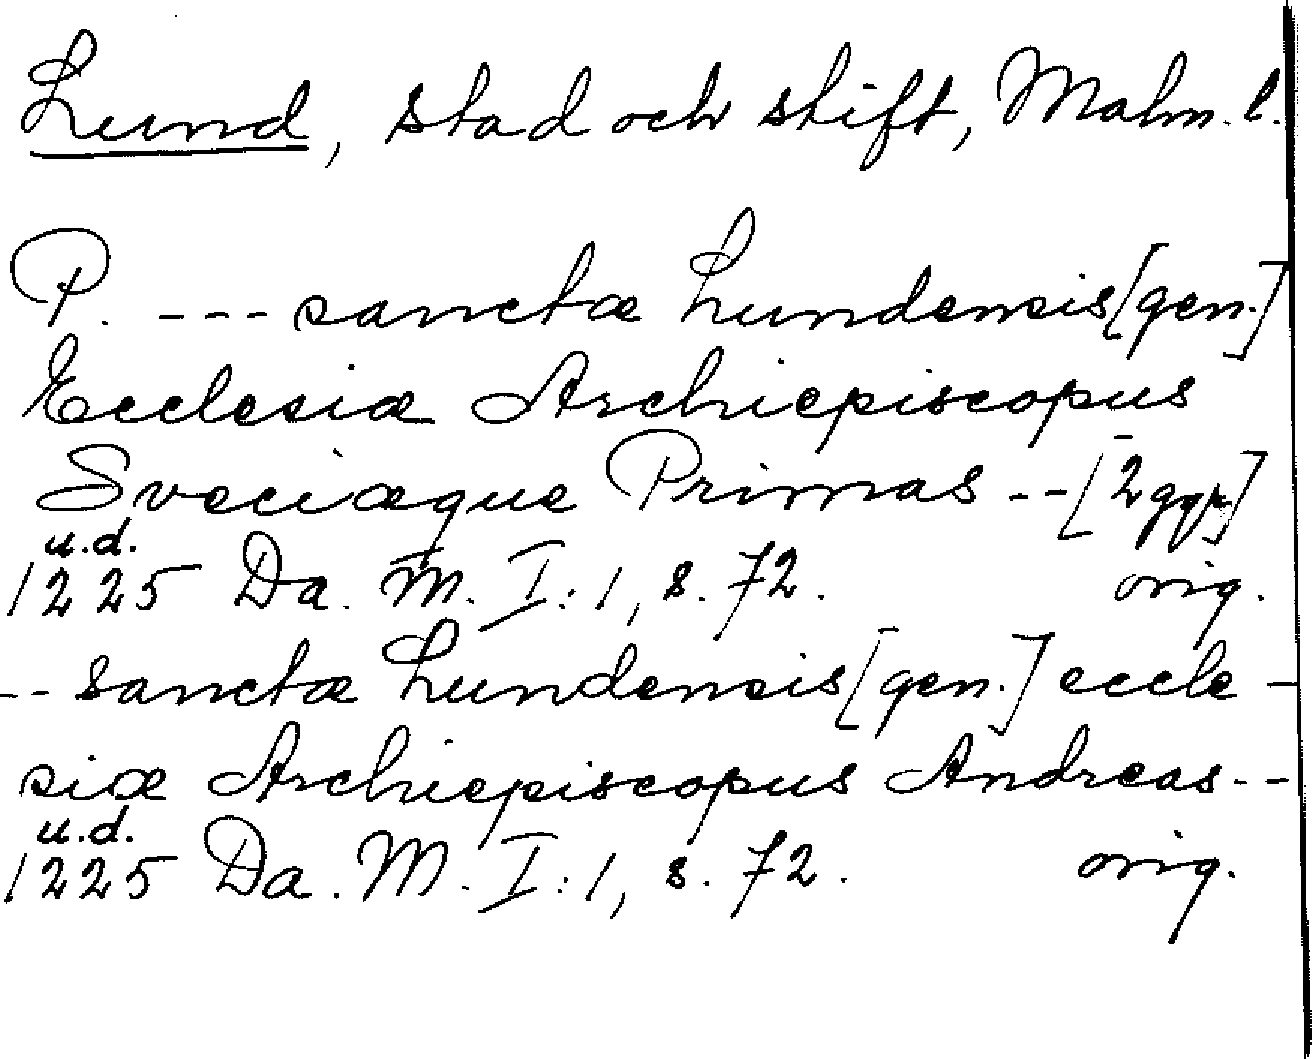 Lund, stad och stift, Malm. l.
P. --- sanctæ Lundensis [gen.]
Ecclesiæ Archiepiscopus
Sveciæque Primas -- [2 ggr]
u.d.
1225 Da. M. I:1, s. 72. orig.
-- sanctæ Lundensis [gen.] eccle-
siæ Archiepiscopus Andreas --
u.d.
1225 Da. M. I:1, s. 72. orig.